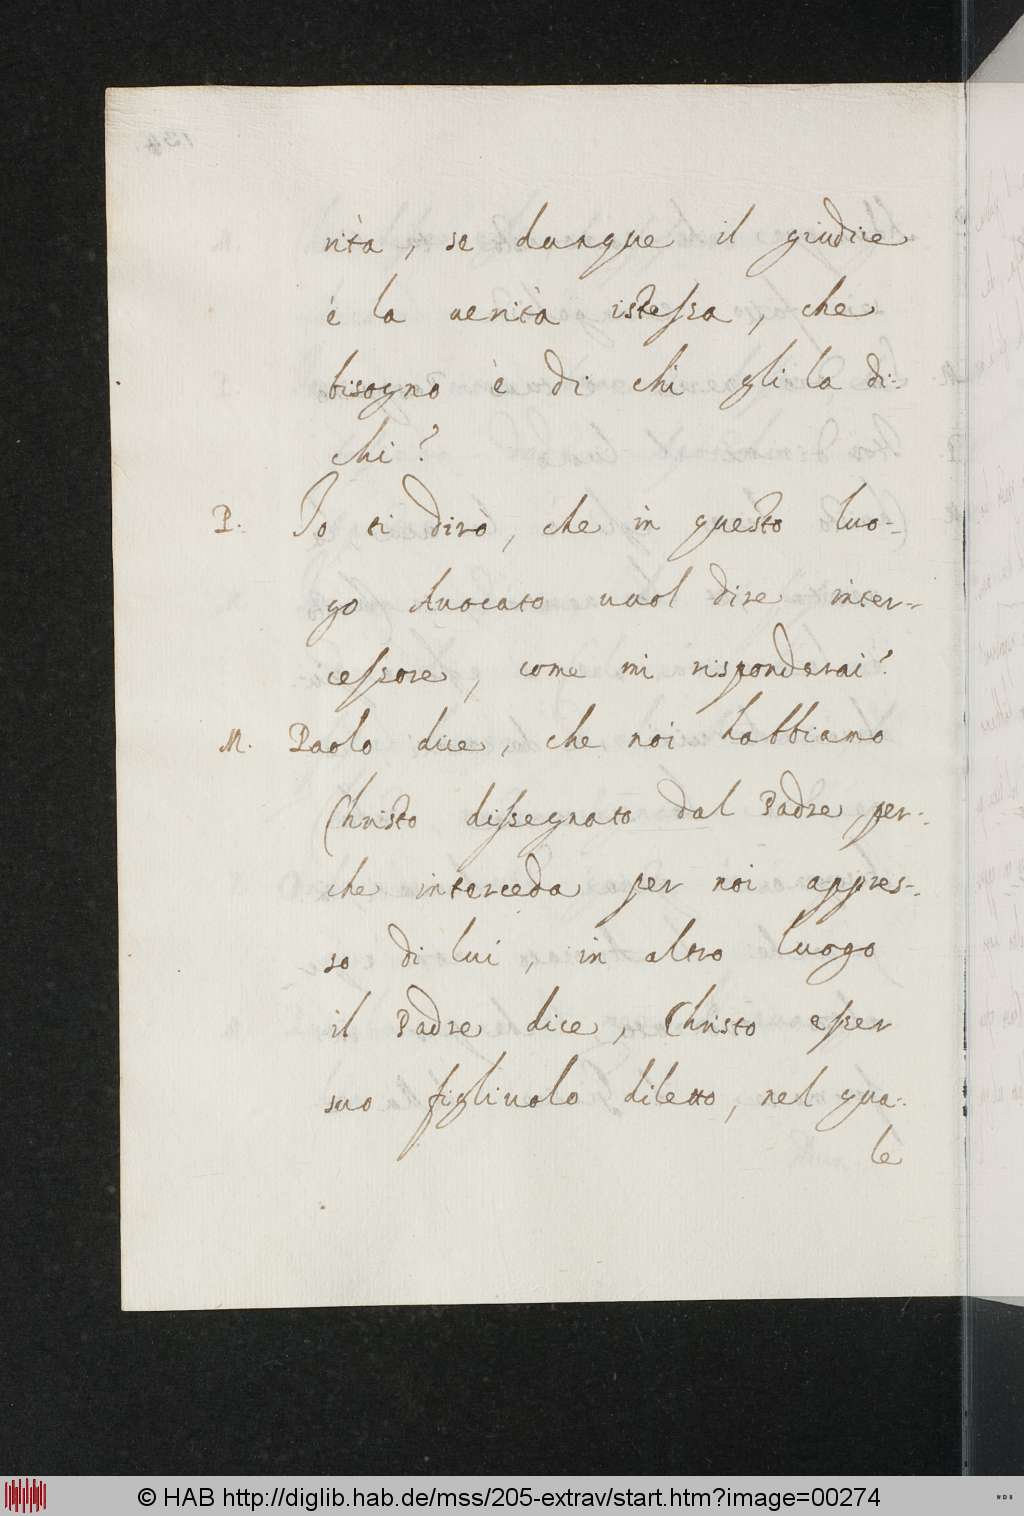 rità, se dunque il giudice
è la uerità istessa, che
bisogno è di chi gli la di-
chi?
P. Io ti dirò, che in questo luo-
go Auocato uuol dire inter-
cessore, come mi risponderai?
M. Paolo dice, che noi habbiamo
Christo dissegnato dal Padre, per-
che interceda per noi appres-
so di lui, in altro luogo
il Padre dice, Christo esser
suo figliuolo diletto, nel qua-
le
© HAB http://diglib.hab.de/mss/205-extrav/start.htm?image=00274